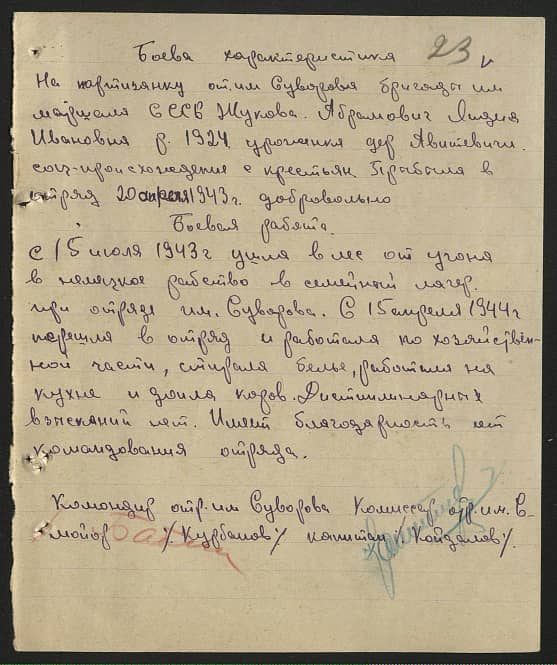 Боева характеристика 23
На партизанку от.им Суворова бригады им
маршала СССБ Жукова. Абрамович Лидия
Ивановна р. 1924 урочанка дер Авитевичи.
соц-происхождение с крестьян Прабыла в
отряд 20 апреля 1943г. добровольно
Боевая работа.
С 15 июля 1943г ушла в лес от угона
в немязкое рабство в семейный лагер.
при отряде им. Суворова. С 15 апреля 1944г
перешла в отряд и работала по хозяйствен-
ной части, стирала белье, работала на
кухне и доила коров. Дистиплинарных
взысканий нет. Имеет благодарность от
командования отряда.
Командир отр. им Суворова Комиссар отр. им. С
майор /. Курбанов ./ капитан /. Койдалов ./.